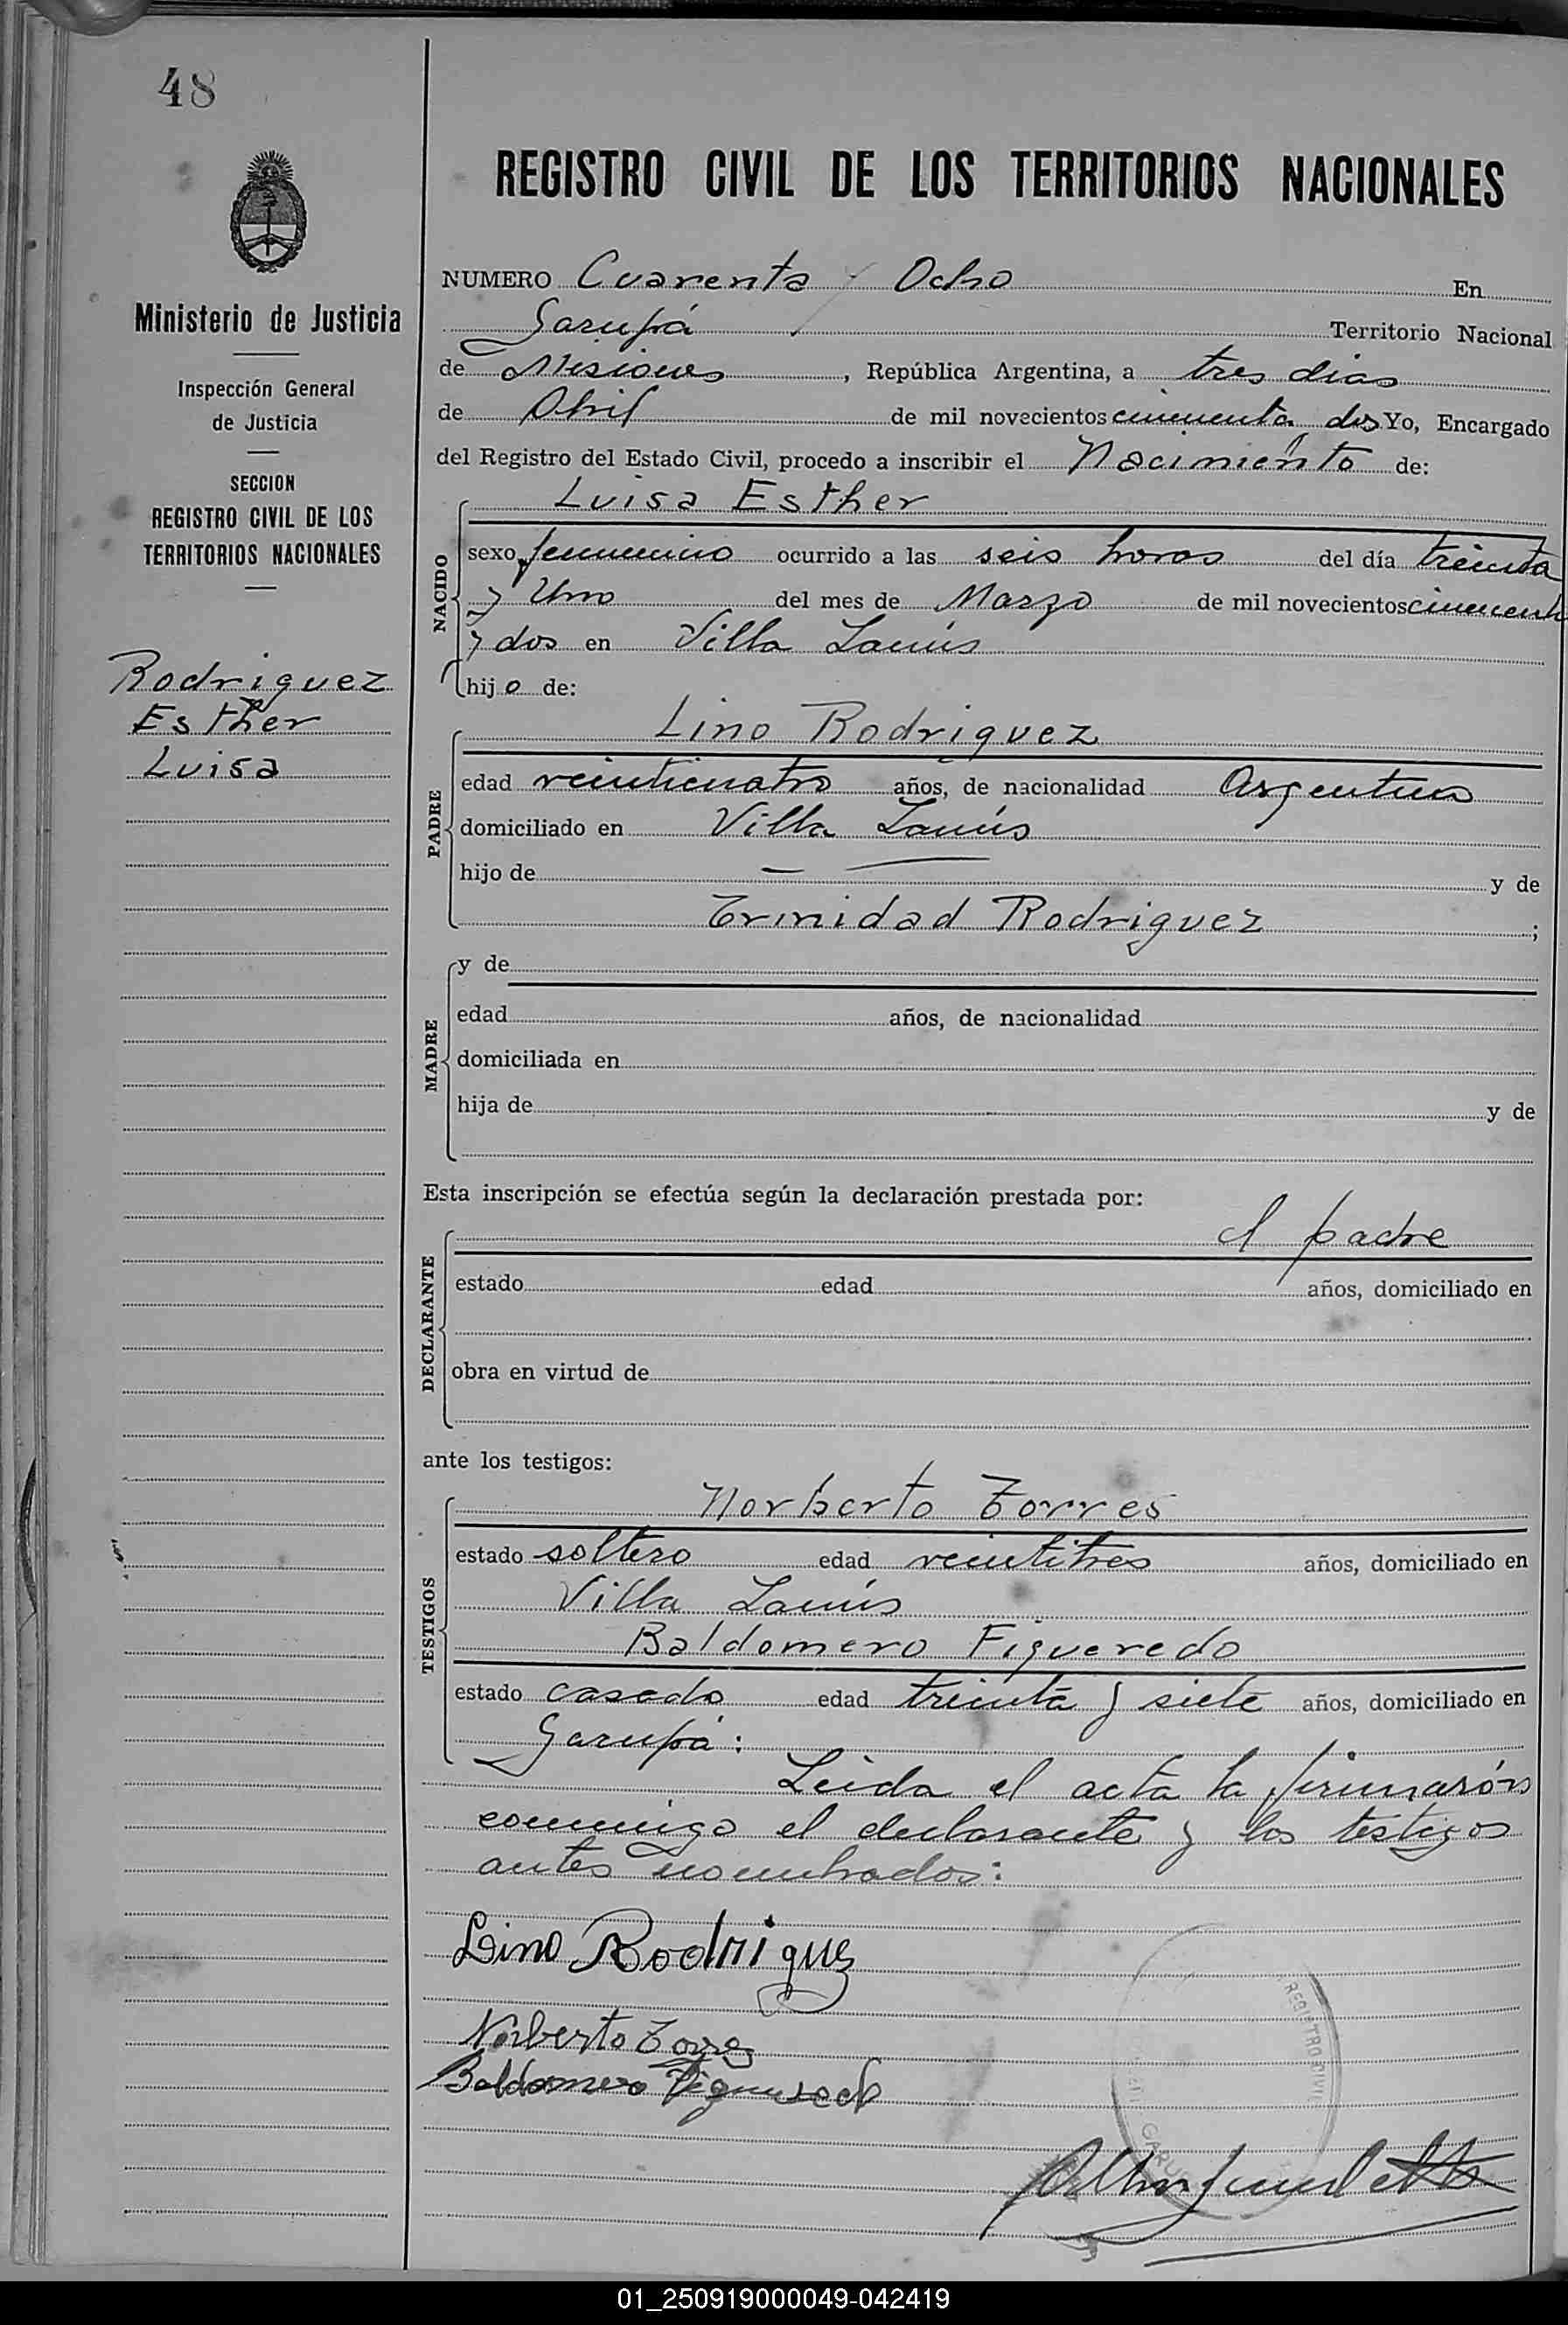 48
REGISTRO CIVIL DE LOS TERRITORIOS NACIONALES
Ministerio de Justicia
Inspección General
de Justicia
SECCION
REGISTRO CIVIL DE LOS
TERRITORIOS NACIONALES
Rodriguez
Esther
Luisa
NUMERO Cuarenta y Ocho En
Garupá Territorio Nacional
de Misiones, República Argentina, a tres dias
de Abril de mil novecientos cincuenta dos Yo, Encargado
del Registro del Estado Civil, procedo a inscribir el Nacimiento de:
Luisa Esther
NACIDO
sexo femenino ocurrido a las seis horas del día treinta
y Uno del mes de Marzo de mil novecientos cincuenta
y dos en Villa Lanús
hijo de:
Lino Rodriguez
PADRE
edad veinticuatro años, de nacionalidad Argentina
domiciliado en Villa Lanús
hijo de — y de
Trinidad Rodriguez ;
MADRE
y de
edad años, de nacionalidad
domiciliada en
hija de y de
Esta inscripción se efectúa según la declaración prestada por:
el padre
DECLARANTE
estado edad años, domiciliado en
obra en virtud de
ante los testigos:
Norberto Torres
TESTIGOS
estado soltero edad veintitres años, domiciliado en
Villa Lanús
Baldomero Figueredo
estado casado edad treinta y siete años, domiciliado en
Garupá:
Leida el acta la firmarón
conmigo el declarante y los testigos
antes nombrados:
Lino Rodriguez
Norberto Torres
Baldomero Figueredo
REGISTRO CIVIL
GARUPA
01_250919000049-042419